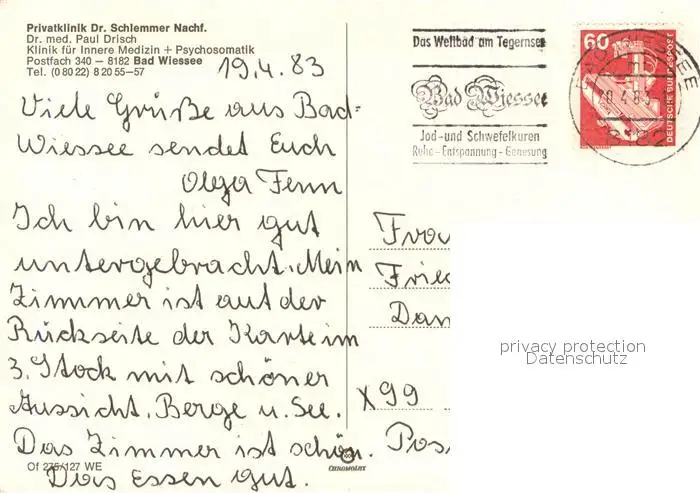 Privatklinik Dr. Schlemmer Nachf.
Dr. med. Paul Drisch
Klinik für Innere Medizin + Psychosomatik
Postfach 340 – 8182 Bad Wiessee
Tel. (0 80 22) 8 20 55–57
19.4.83
Viele Grüße aus Bad-
Wiessee sendet Euch
Olga Fenn
Ich bin hier gut
untergebracht. Mein
Zimmer ist auf der
Rückseite der Karte im
3. Stock mit schöner
Aussicht. Berge u. See.
Das Zimmer ist schön.
Das Essen gut.
Of 275/127 WE
CHROMOLUX
Das Weltbad am Tegernsee
Bad Wiessee
Jod- und Schwefelkuren
Ruhe – Entspannung – Genesung
60
DEUTSCHE BUNDESPOST
8182
Frau
Fried
X99
Pos
privacy protection
Datenschutz